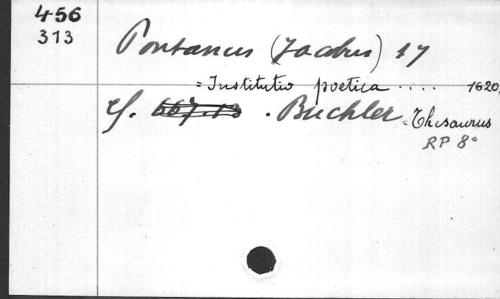 456
313
Pontanus (Jacobus) 17
= Institutio poetica .... 1620,
Cf. 667.13 . Buchler = Thesaurus
RP 8°